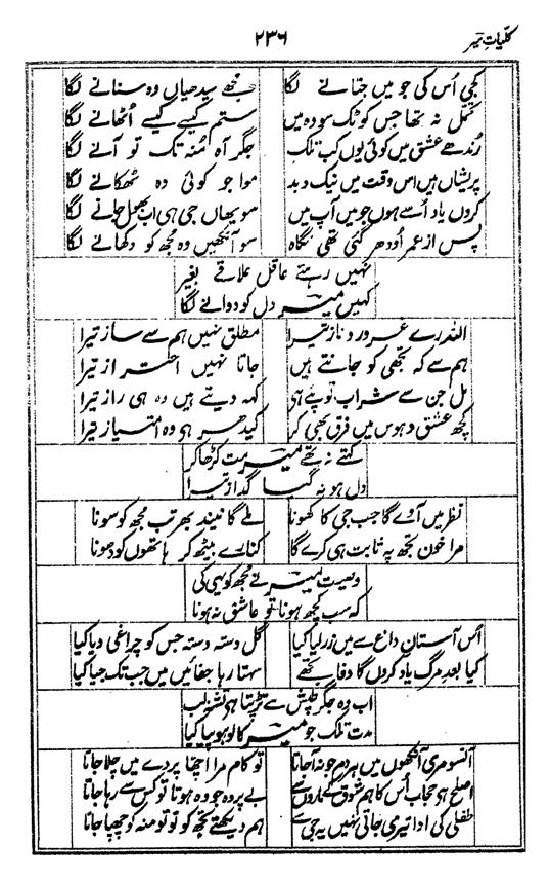 کلیاتِ میر
۲۳۶
کجی اُس کی جو میں جتانے لگا مجھے سیدھیاں وہ سنانے لگا
تحمل نہ تھا جس کو ٹک سو وہ میں ستم کیسے کیسے اُٹھانے لگا
رُندھے عشق میں کوئی یوں کب تلک جگر آہ مُنہ تک تو آنے لگا
پریشاں ہیں اس وقت میں نیک و بد موا جو کوئی وہ ٹھکانے لگا
کروں یاد اُسے ہوں جو میں آپ میں سو یھاں جی ہی اب بھول جانے لگا
پس از عمر اودھر گئی تھی نگاہ سو آنکھیں وہ مجھ کو دکھانے لگا
نہیں رہتے عاقل علاقے بغیر
کہیں میر دل کو دوانے لگا
اللہ رے غرور و ناز تیرا مطلق نہیں ہم سے ساز تیرا
ہم سے کہ تجھی کو جانتے ہیں جاتا نہیں احتراز تیرا
مل جن سے شراب تو پئے ہی کہہ دیتے ہیں وہ ہی راز تیرا
کچھ عشق و ہوس میں فرق بھی کر کیدھر ہی وہ امتیاز تیرا
کہتے نہ تھے میر مت کڑھا کر
دل ہو نہ گیا گداز تیرا
نظر میں آوے گا جب جی کا کھونا ملے گا نیند بھر تب مجھ کو سونا
مرا خون تجھ پہ ثابت ہی کرے گا کنارے بیٹھ کر ہاتھوں کو دھونا
وصیت میر نے مجھ کو یہی کی
کہ سب کچھ ہونا تو عاشق نہ ہونا
اُس آستانِ داغ سے میں زر لیا کیا گل دستہ دستہ جس کو چراغی دیا کیا
کیا بعدِ مرگ یاد کروں گا وفا تجھے سہتا رہا جفائیں میں جب تک جیا کیا
اب وہ جگر تپش سے تڑپتا ہی تشنہ لب
مدت تلک جو میر کا لوہو پیا کیا
آنسو مری آنکھوں میں ہر دم جو نہ آ جاتا تو کام مرا اچھا پردے میں چلا جاتا
اصلح ہی حجاب اُس کا ہم شوق کے ماروں سے بے پردہ جو وہ ہوتا تو کس سے رہا جاتا
طفلی کی ادا تیری جاتی نہیں یہ جی سے ہم دیکھتے تجھ کو تو تو منہ کو چھپا جاتا